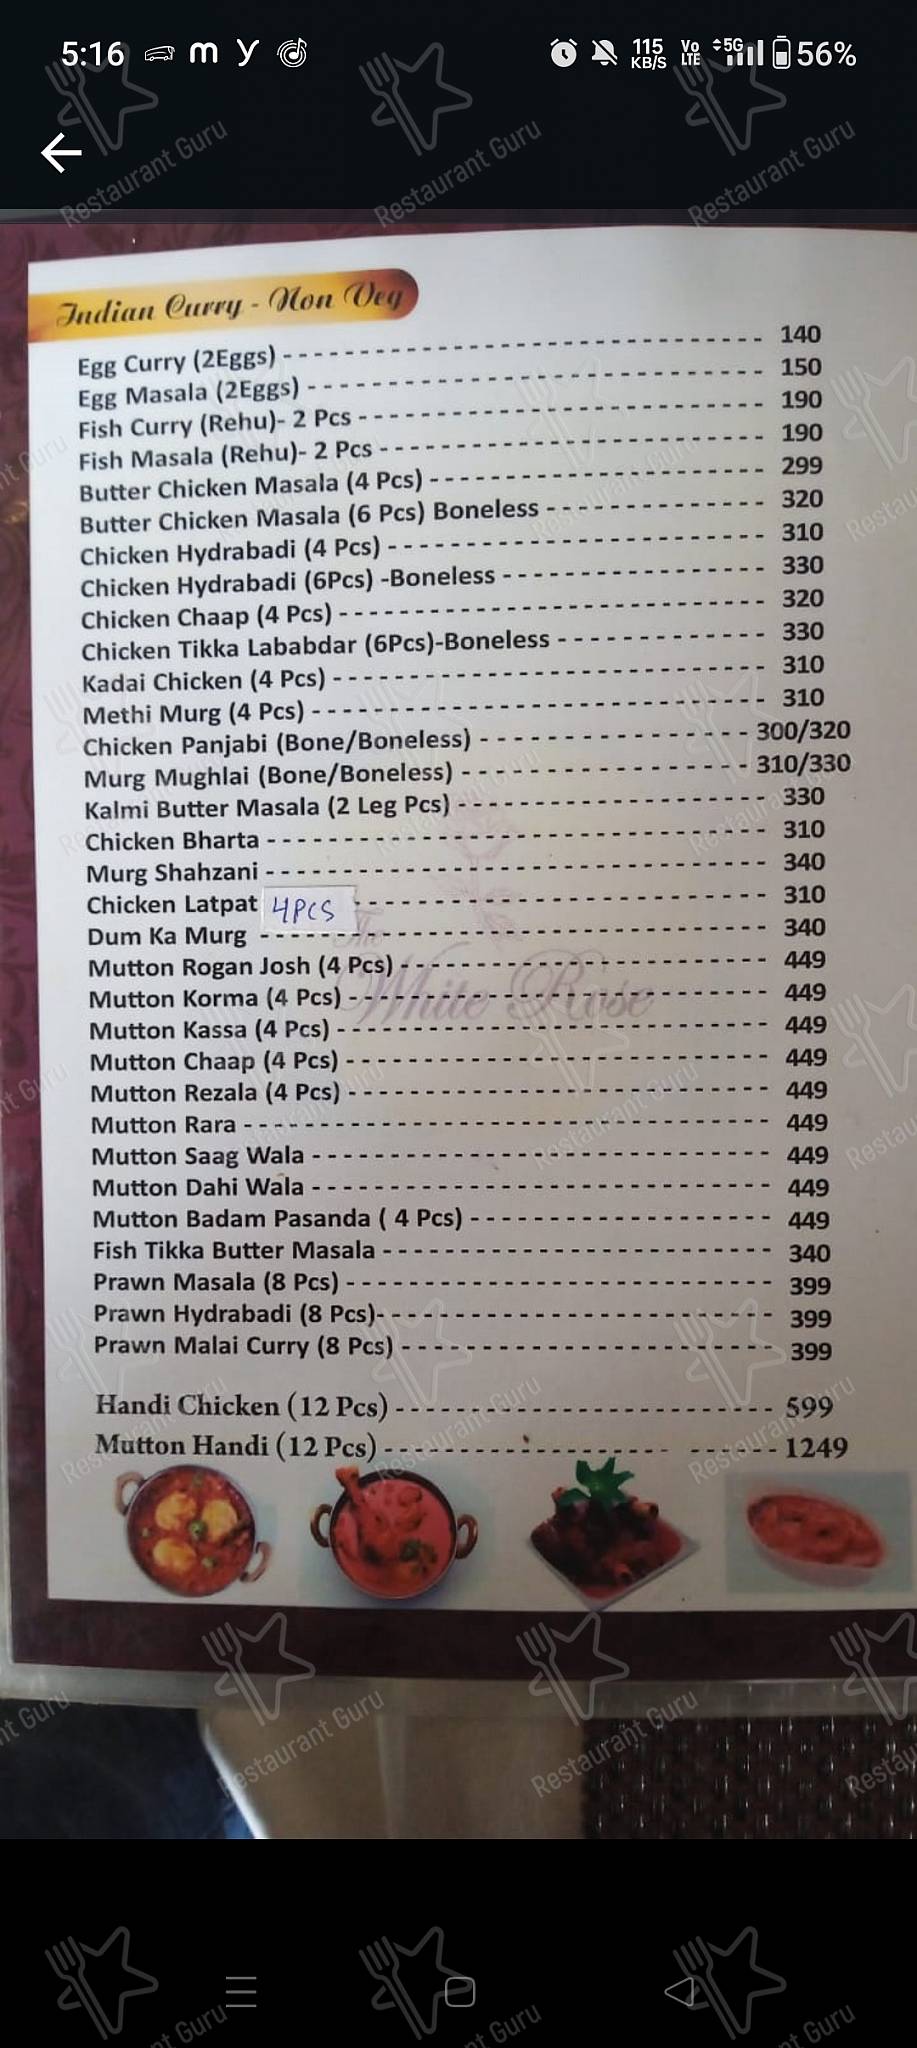 5:16 m y 115 KB/S Vo LTE 5G 56%
Restaurant Guru Restaurant Guru Restaurant Guru
Indian Curry - Non Veg
Egg Curry (2Eggs) 140
Egg Masala (2Eggs) 150
Fish Curry (Rehu)- 2 Pcs 190
Fish Masala (Rehu)- 2 Pcs 190
Butter Chicken Masala (4 Pcs) 299
Butter Chicken Masala (6 Pcs) Boneless 320
Chicken Hydrabadi (4 Pcs) 310
Chicken Hydrabadi (6Pcs) -Boneless 330
Chicken Chaap (4 Pcs) 320
Chicken Tikka Lababdar (6Pcs)-Boneless 330
Kadai Chicken (4 Pcs) 310
Methi Murg (4 Pcs) 310
Chicken Panjabi (Bone/Boneless) 300/320
Murg Mughlai (Bone/Boneless) 310/330
Kalmi Butter Masala (2 Leg Pcs) 330
Chicken Bharta 310
Murg Shahzani 340
Chicken Latpat 4PCS 310
Dum Ka Murg 340
The White Rose
Mutton Rogan Josh (4 Pcs) 449
Mutton Korma (4 Pcs) 449
Mutton Kassa (4 Pcs) 449
Mutton Chaap (4 Pcs) 449
Mutton Rezala (4 Pcs) 449
Mutton Rara 449
Mutton Saag Wala 449
Mutton Dahi Wala 449
Mutton Badam Pasanda ( 4 Pcs) 449
Fish Tikka Butter Masala 340
Prawn Masala (8 Pcs) 399
Prawn Hydrabadi (8 Pcs) 399
Prawn Malai Curry (8 Pcs) 399
Handi Chicken (12 Pcs) 599
Mutton Handi (12 Pcs) 1249
Restaurant Guru Restaurant Guru